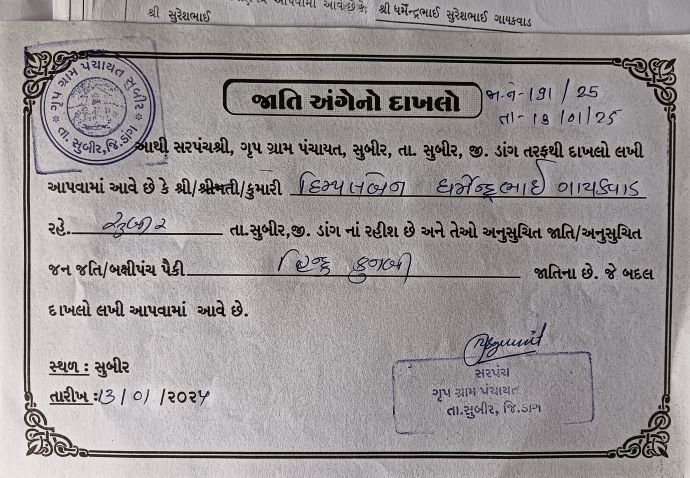 આપવામાં આવે છે કે,
શ્રી સુરેશભાઈ
શ્રી ધર્મેન્દ્રભાઈ સુરેશભાઈ ગાયકવાડ
ગૃપ ગ્રામ પંચાયત સુબીર
તા. સુબીર, જિ. ડાંગ
જાતિ અંગેનો દાખલો
જા-ને-191/25
તા-13/01/25
આથી સરપંચશ્રી, ગૃપ ગ્રામ પંચાયત, સુબીર, તા. સુબીર, જી. ડાંગ તરફથી દાખલો લખી
આપવામાં આવે છે કે શ્રી/શ્રીમતી/કુમારી દિમ્પલબેન ધર્મેન્દ્રભાઈ ગાયકવાડ
રહે. સુબીર તા.સુબીર,જી. ડાંગ નાં રહીશ છે અને તેઓ અનુસુચિત જાતિ/અનુસુચિત
જન જતિ/બક્ષીપંચ પૈકી હિન્દુ કુનબી જાતિના છે. જે બદલ
દાખલો લખી આપવામાં આવે છે.
સ્થળ : સુબીર
તારીખ :13/01/૨૦૨૫
સરપંચ
ગૃપ ગ્રામ પંચાયત
તા.સુબીર, જિ.ડાંગ